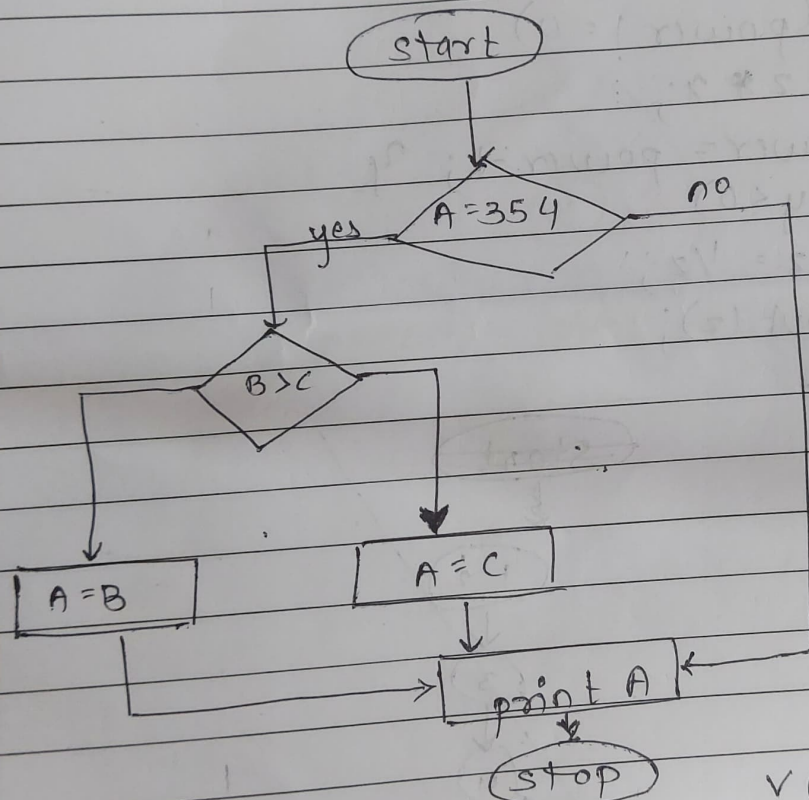 start
A = 354
no
yes
B > C
A = B
A = C
print A
stop